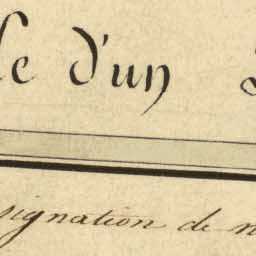 le d'un
signation de n